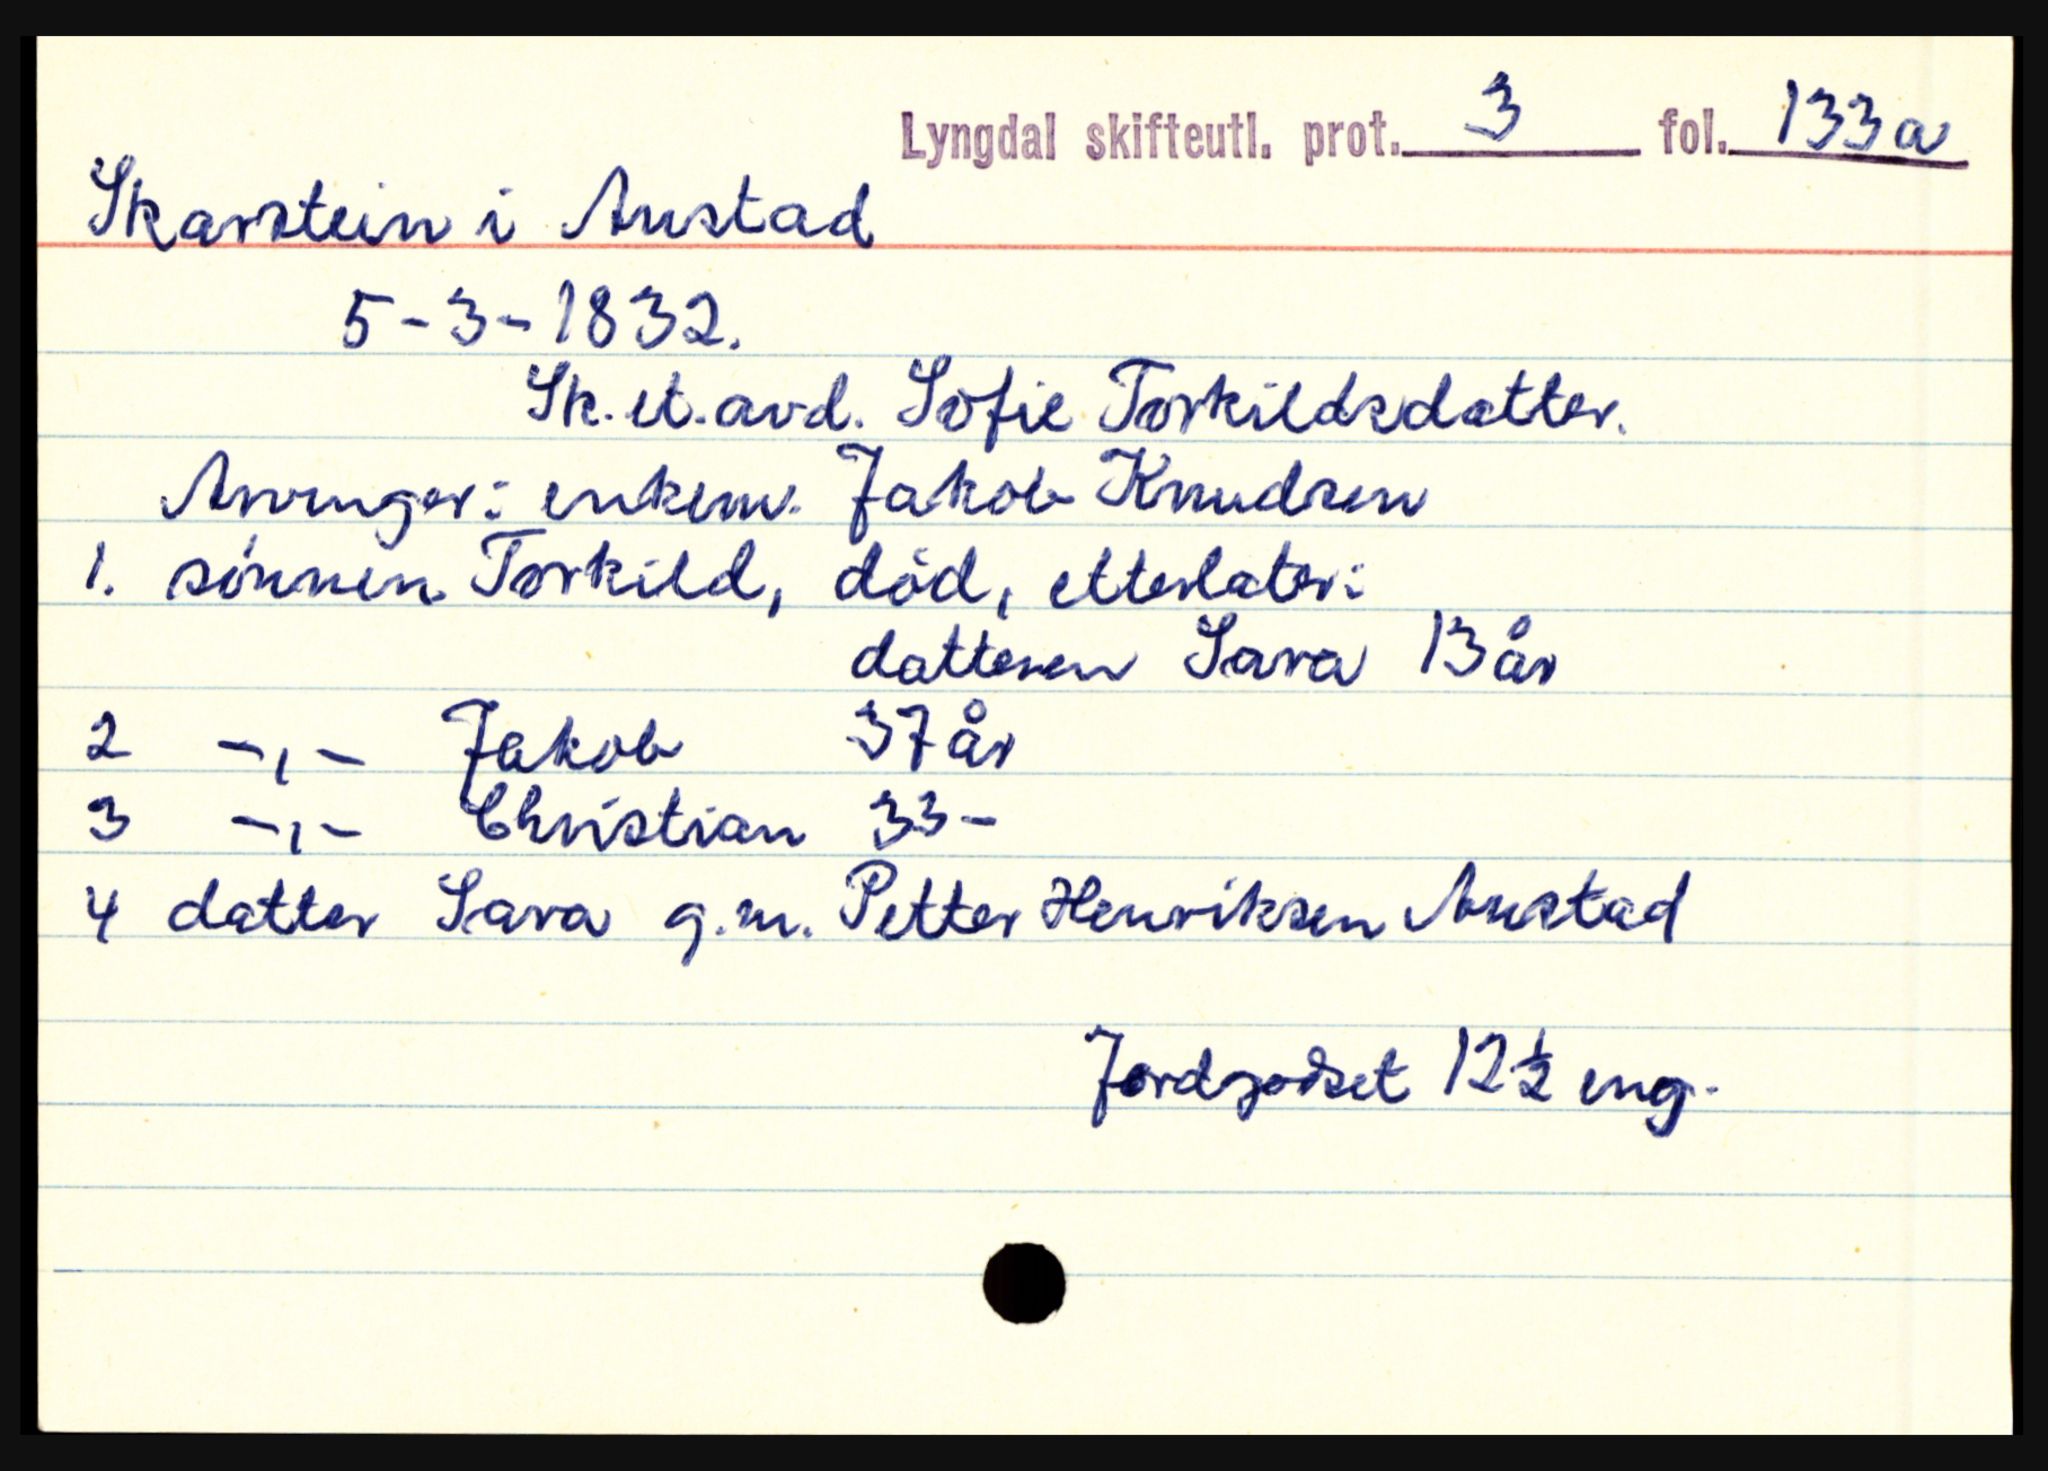 Lyngdal skifteutl. prot. 3 fol. 133a
Skarstein i Austad
5-3-1832.
Sk. et. avd. Sofie Torkildsdatter.
Arvinger: enkem. Jakob Knudsen
1. sønnen Torkild, død, etterlater:
datteren Sara 13 år
2 -,- Jakob 37 år
3 -,- Christian 33 -
4 datter Sara g.m. Petter Henriksen Austad
Jordgodset 12½ eng.